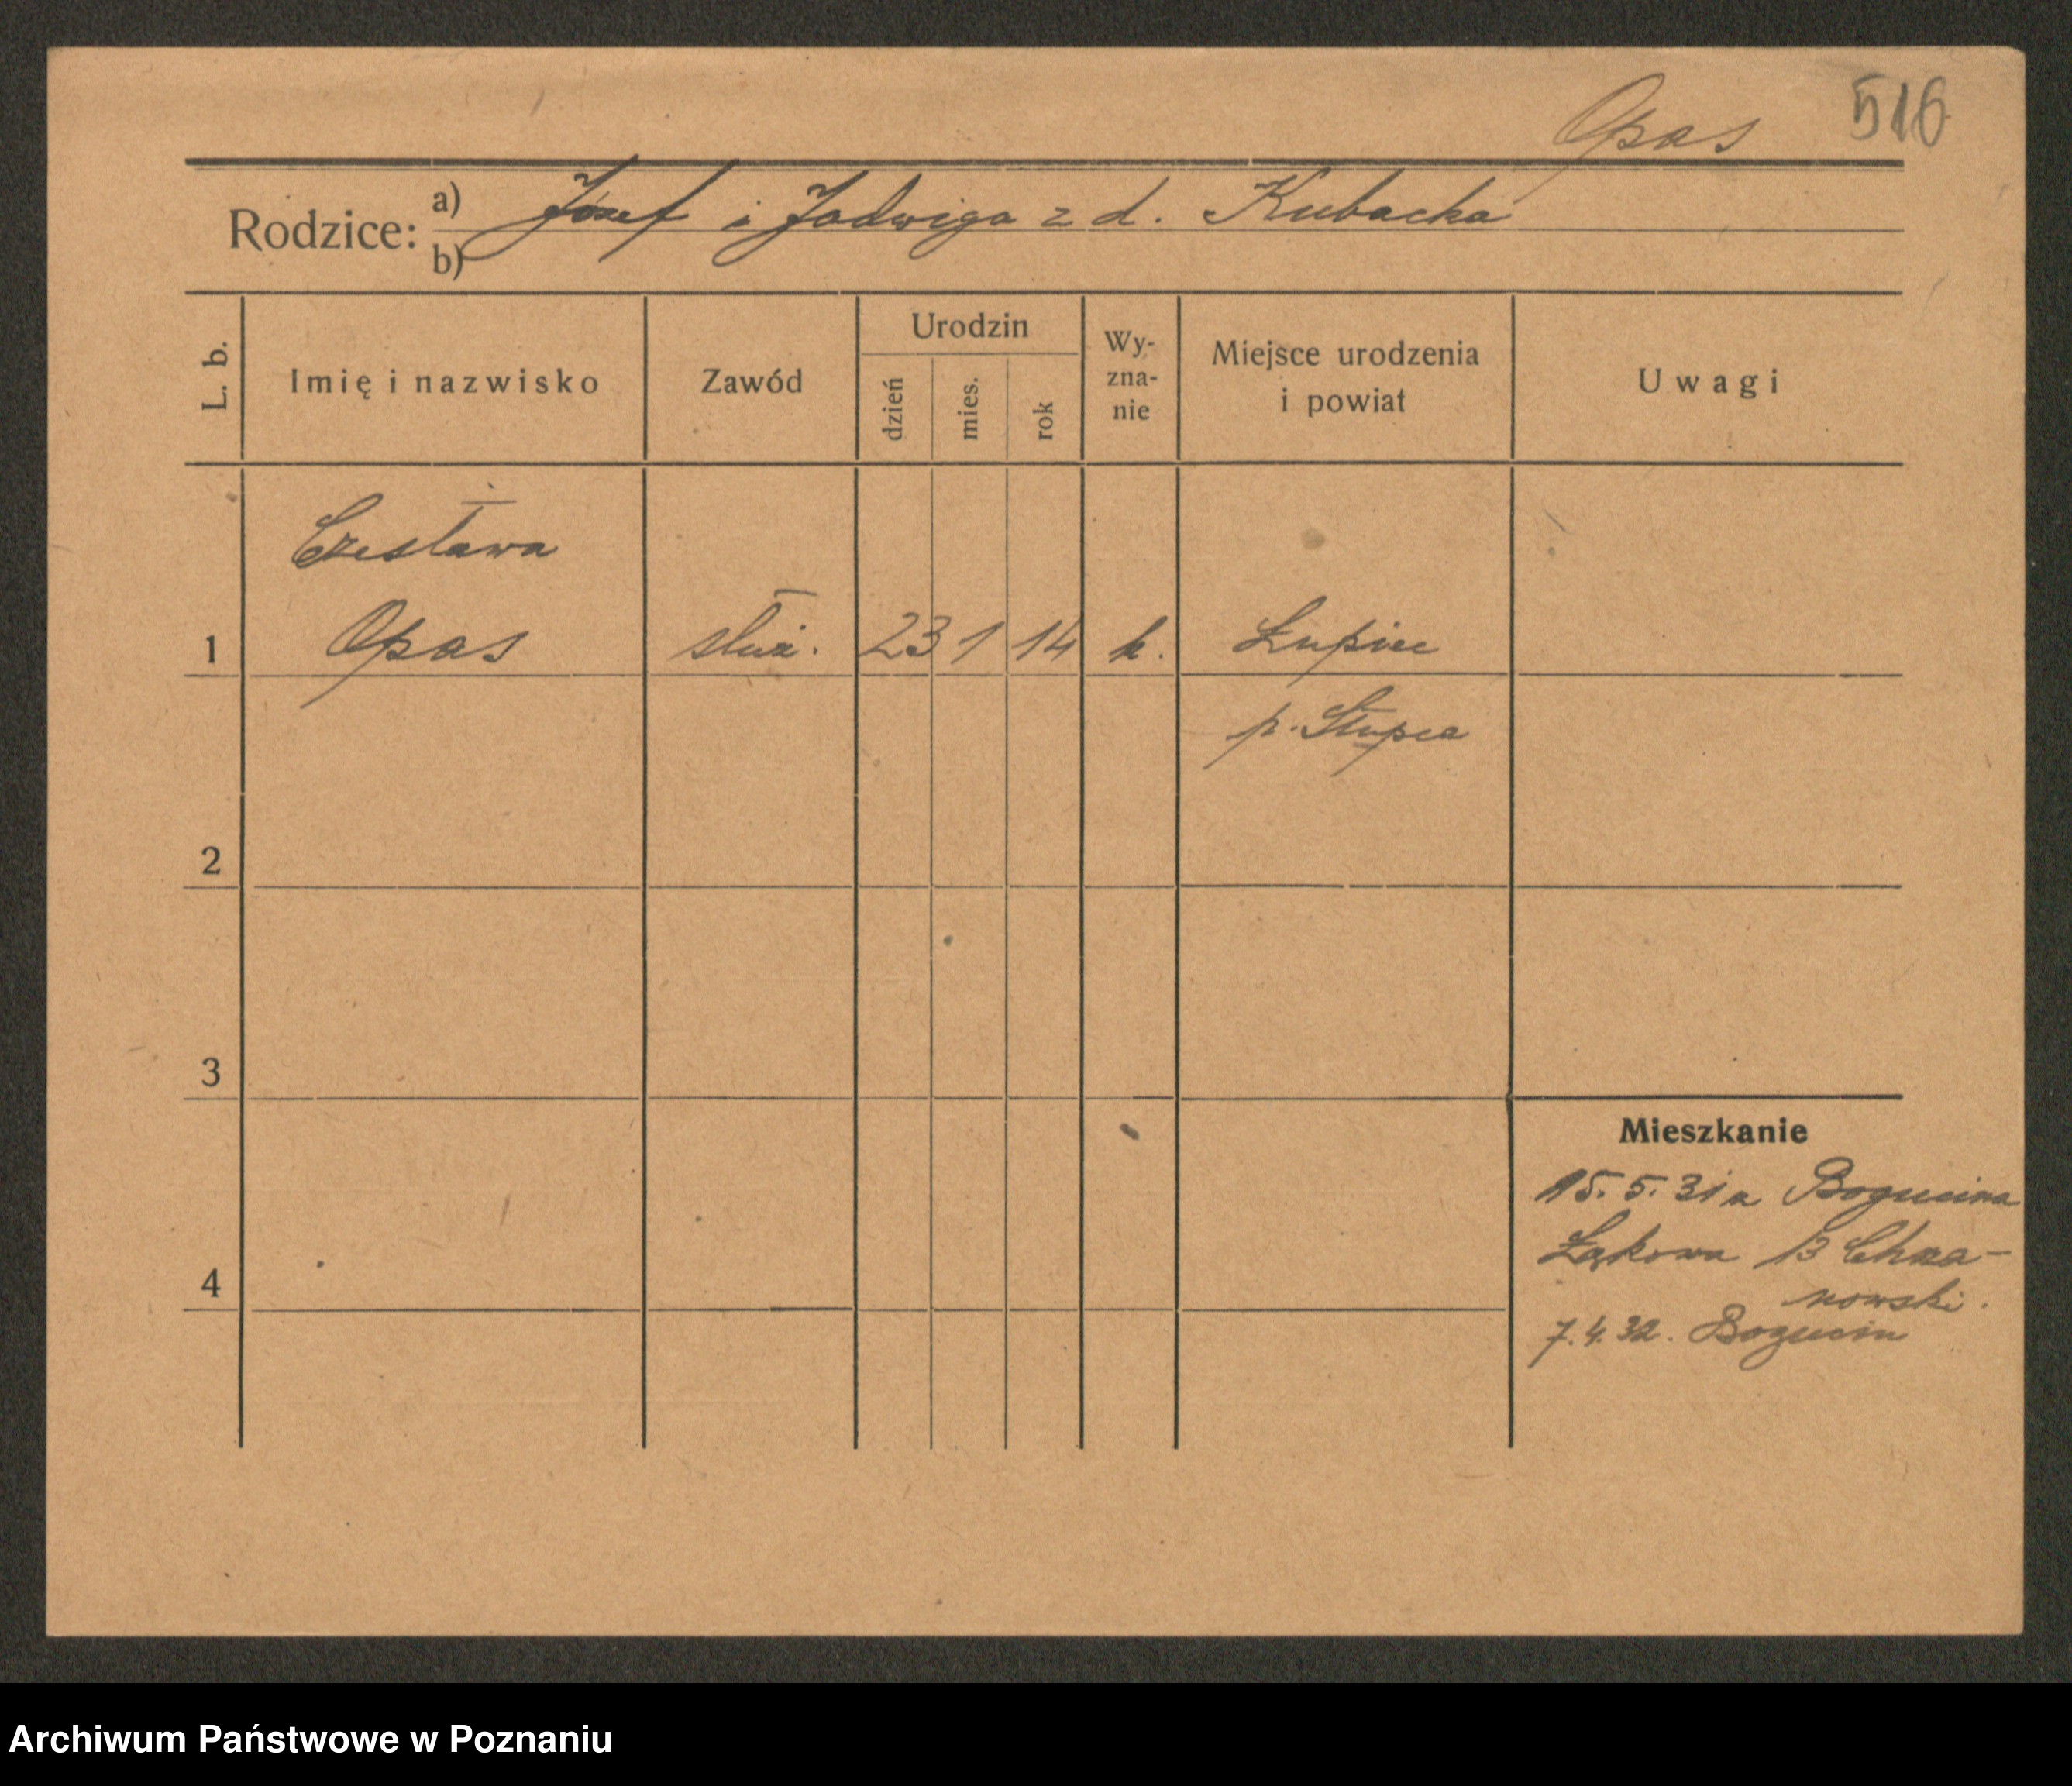 Opas 516
Rodzice: a) Józef i Jadwiga z d. Kubacka
b)
L. b. Imię i nazwisko Zawód Urodzin dzień mies. rok Wy-zna-nie Miejsce urodzenia i powiat Uwagi
Czesława
1 Opas służ. 23 1 14 k. Łupiec
p. Słupca
2
3
Mieszkanie
15. 5. 31 z Bogucina
Łąkowa 13 Chrza-
4
nowski.
7. 4. 32. Bogucin
Archiwum Państwowe w Poznaniu